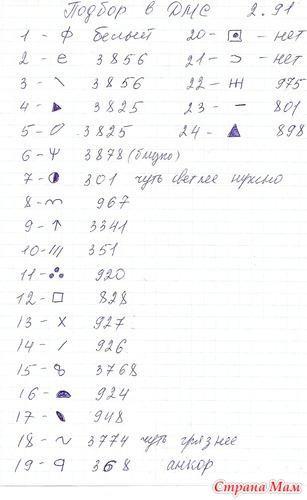 Подбор в ДМС 2.91
1 - ф белый 20 - - нет
2 - е 3856 21 - - нет
3 - \ 3856 22 - 975
4 - 3825 23 - — 801
5 - 3825 24 - ▲ 898
6 - Ψ 3878 (близко)
7 - 301 чуть светлее нужно
8 - 967
9 - ↑ 3341
10 - /// 351
11 - 920
12 - □ 828
13 - x 927
14 - / 926
15 - 3768
16 - 924
17 - 948
18 - ~ 3774 чуть грязнее
19 - 368 анкор
Страна Мам